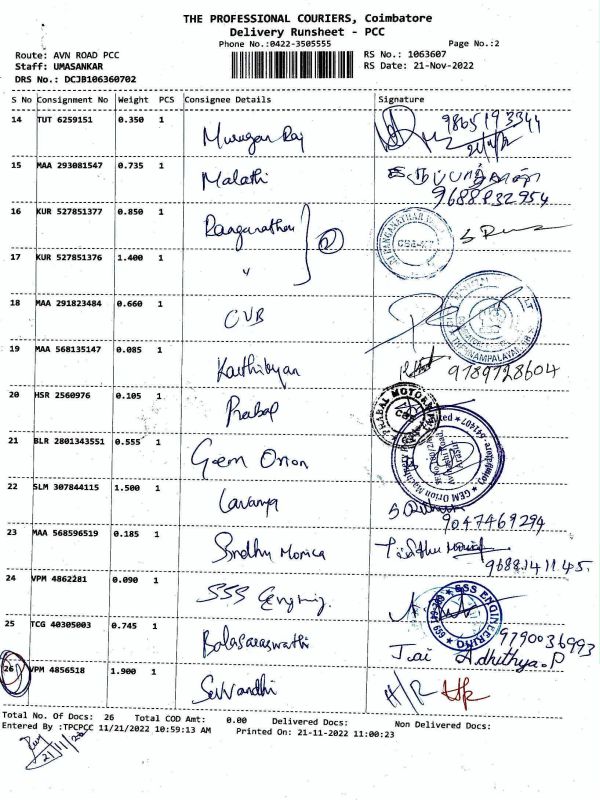 THE PROFESSIONAL COURIERS, Coimbatore
Delivery Runsheet - PCC
Phone No.:0422-3505555 Page No.:2
Route: AVN ROAD PCC RS No.: 1063607
Staff: UMASANKAR RS Date: 21-Nov-2022
DRS No.: DCJB106360702
S No Consignment No Weight PCS Consignee Details Signature
14 TUT 6259151 0.350 1 Murugan Raj 9865193344
15 MAA 293081547 0.735 1 Malathi
9688832954
16 KUR 527851377 0.850 1 Ranganathan
17 KUR 527851376 1.400 1 "
18 MAA 291823484 0.660 1 CUB
19 MAA 568135147 0.085 1 Karthikeyan 9789728604
20 HSR 2560976 0.105 1 Prabal
21 BLR 2801343551 0.555 1 Geem Orion
22 SLM 307844115 1.500 1 Lavanya
9047469294
23 MAA 568596519 0.185 1 Sindhu Monica
9688141145
24 VPM 4862281 0.090 1 SSS
SSS ENGINEERING
25 TCG 40305003 0.745 1 Balasaraswathi 9790036993
Jai Adhithya.P
26 VPM 4856518 1.900 1 Selvandhi H/R
Total No. Of Docs: 26 Total COD Amt: 0.00 Delivered Docs: Non Delivered Docs:
Entered By :TPCPCC 11/21/2022 10:59:13 AM Printed On: 21-11-2022 11:00:23
21/11/22